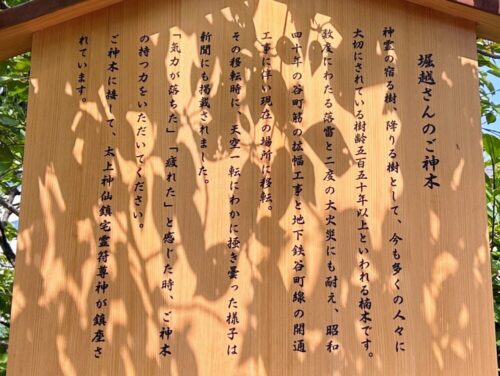 堀越さんのご神木
神霊の宿る樹、降りる樹として、今も多くの人々に
大切にされている樹齢五百五十年以上といわれる楠木です。
数度にわたる落雷と二度の大火災にも耐え、昭和
四十年の谷町筋の拡幅工事と地下鉄谷町線の開通
工事に伴い現在の場所に移転。
その移転時に、天空一転にわかに掻き曇った様子は
新聞にも掲載されました。
「気力が落ちた」「疲れた」と感じた時、ご神木
の持つ力をいただいてください。
ご神木に接して、太上神仙鎮宅霊符尊神が鎮座さ
れています。